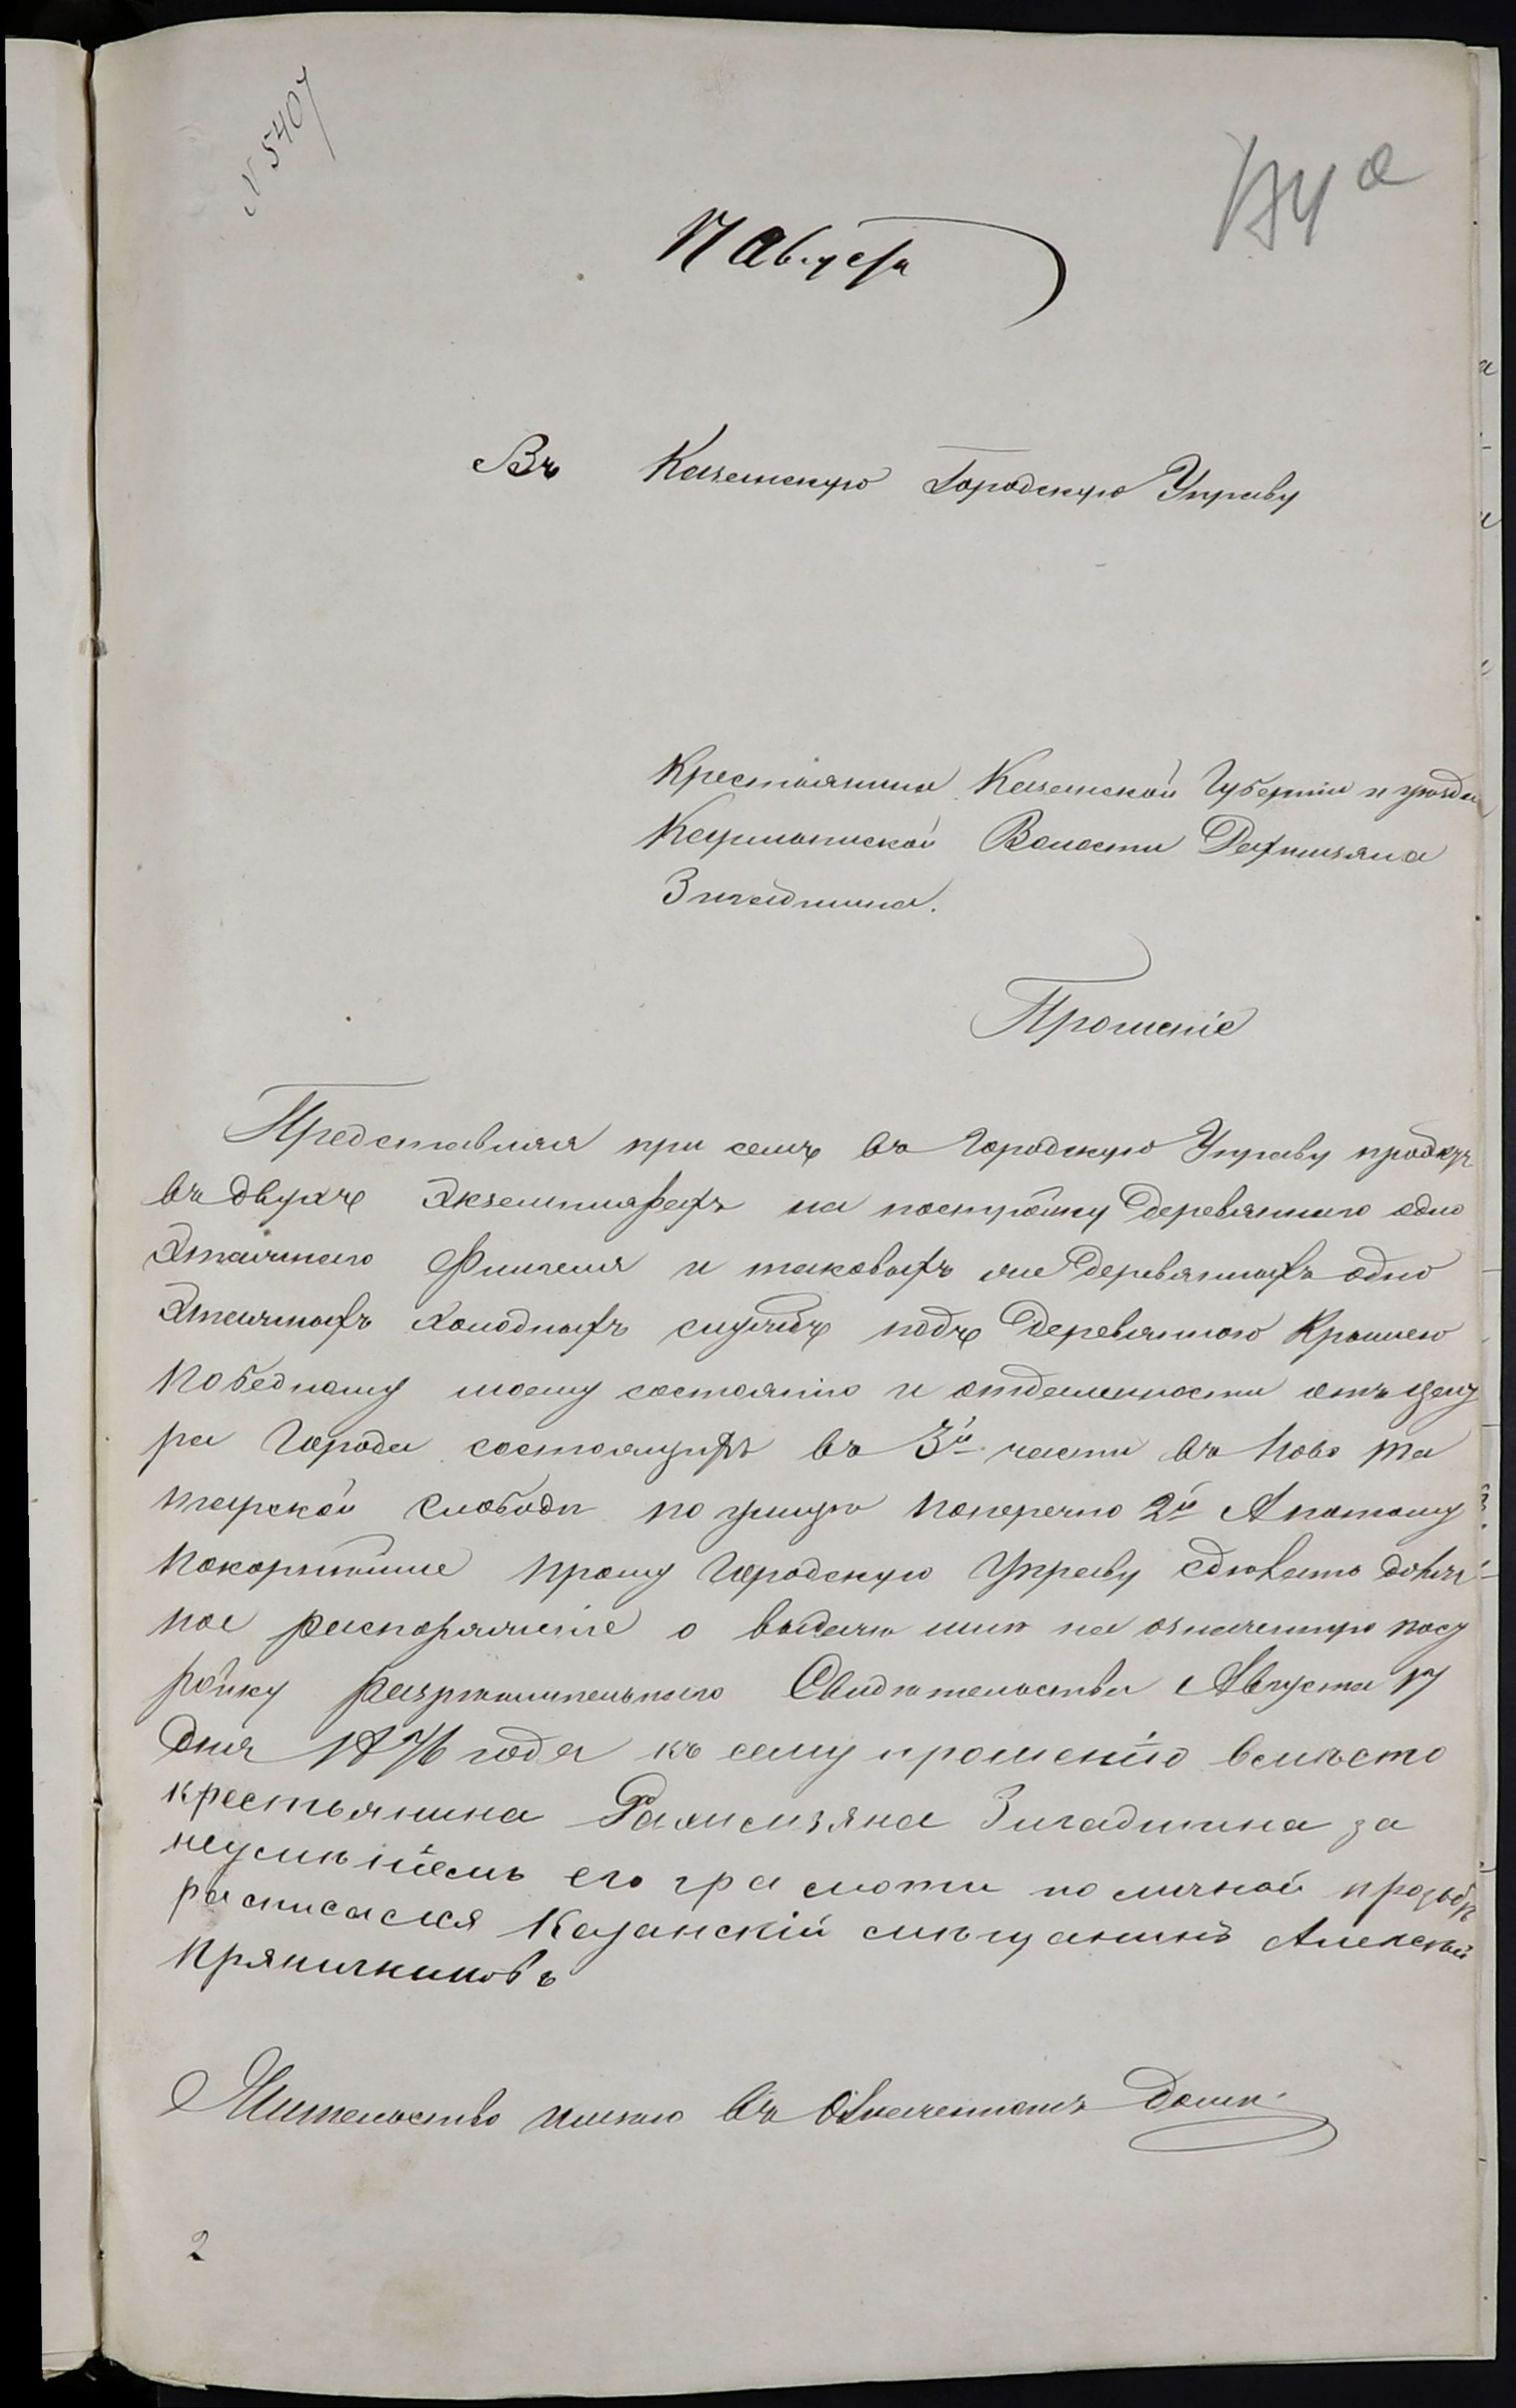 N 5407
174 а
17 Августа
Въ Казанскую Городскую Управу
Крестьянина Казанской Губерніи и уѣзда
Каймарской Волости Рахимзяна
Зигадтина.
Прошеніе
Представляя при семъ въ Городскую Управу проэктъ
въ двухъ Экземплярахъ на постройку деревяннаго одно
Этажнаго Флигеля и таковыхъ же деревянныхъ одно
Этажныхъ холодныхъ службъ подъ деревянною Крышею
по бедному моему состоянію и отдаленности отъ цент
ра Города состоящихъ въ 3й части въ Ново Та
тарской Слободѣ по улицѣ поперечно 2й А потому
покорнѣйше прошу Городскую Управу сдѣлать долж
ное распоряженіе о выдачѣ мнѣ на означенную пост
ройку разрѣшительнаго Свидѣтельства Августа 17
дня 1876 года къ сему прошенію вмѣсто
крестьянина Рахимзяна Зигадтина за
неумѣніемъ его грамоты по личной прозьбѣ
расписался Казанскій мѣщанинъ Алексѣй
Пряничниковъ
Жительство имѣю въ Означенномъ домѣ.
2